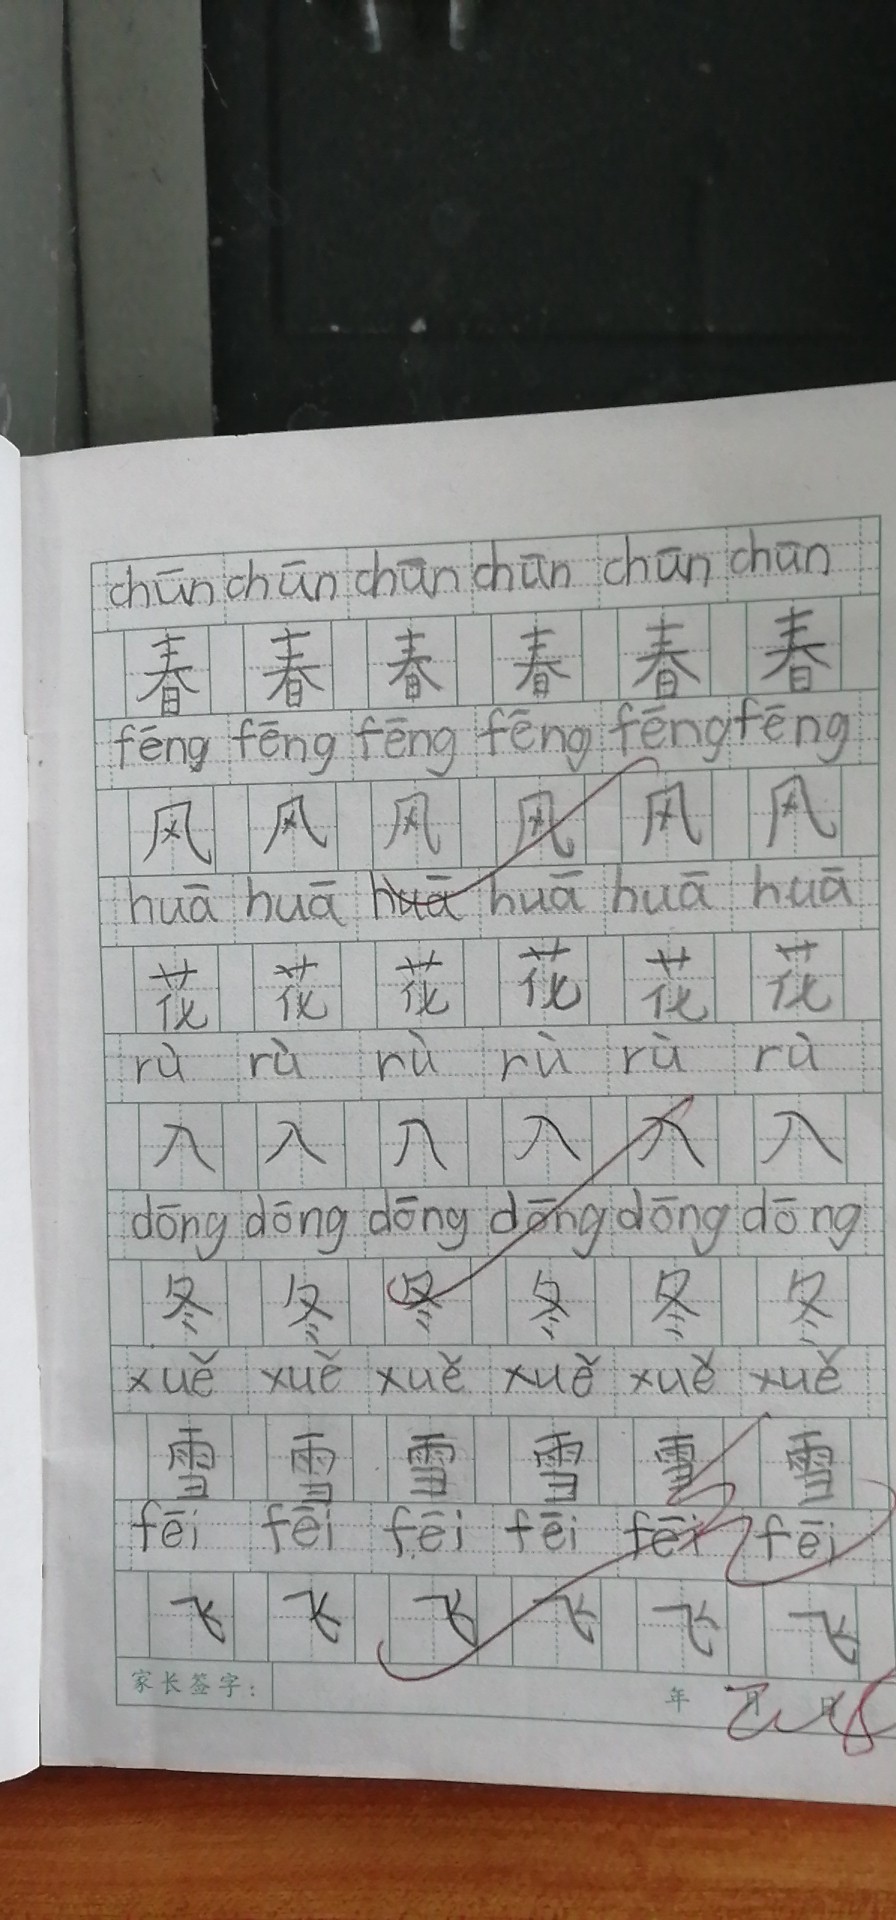 chūn chūn chūn chūn chūn chūn
春 春 春 春 春 春
fēng fēng fēng fēng fēng fēng
风 风 风 风 风 风
huā huā huā huā huā huā
花 花 花 花 花 花
rù rù rù rù rù rù
入 入 入 入 入 入
dōng dōng dōng dōng dōng dōng
冬 冬 冬 冬 冬 冬
xuě xuě xuě xuě xuě xuě
雪 雪 雪 雪 雪 雪
fēi fēi fēi fēi fēi fēi
飞 飞 飞 飞 飞 飞
家长签字： 年 月 日